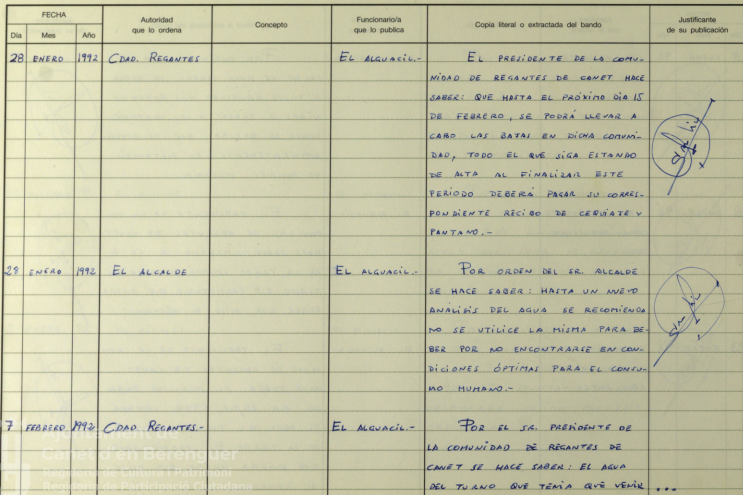 FECHA
Día Mes Año
Autoridad
que lo ordena
Concepto
Funcionario/a
que lo publica
Copia literal o extractada del bando
Justificante
de su publicación
28 ENERO 1992 CDAD. REGANTES EL ALGUACIL.- EL PRESIDENTE DE LA COMU-
NIDAD DE REGANTES DE CANET HACE
SABER: QUE HASTA EL PRÓXIMO DÍA 15
DE FEBRERO, SE PODRÁ LLEVAR A
CABO LAS BAJAS EN DICHA COMUNI-
DAD, TODO EL QUE SIGA ESTANDO
DE ALTA AL FINALIZAR ESTE
PERIODO DEBERÁ PAGAR SU CORRES-
PONDIENTE RECIBO DE CEQUIAJE Y
PANTANO.-
28 ENERO 1992 EL ALCALDE EL ALGUACIL.- POR ORDEN DEL SR. ALCALDE
SE HACE SABER: HASTA UN NUEVO
ANÁLISIS DEL AGUA SE RECOMIENDA
NO SE UTILICE LA MISMA PARA BE-
BER POR NO ENCONTRARSE EN CON-
DICIONES ÓPTIMAS PARA EL CONSU-
MO HUMANO.-
7 FEBRERO 1992 CDAD REGANTES.- EL ALGUACIL.- POR EL SR. PRESIDENTE DE
LA COMUNIDAD DE REGANTES DE
CANET SE HACE SABER: EL AGUA
DEL TURNO QUE TENÍA QUE VENIR ...
Ajuntament de
Canet d'en Berenguer
Regidoria de Cultura i Patrimoni
Regidoria de Participació Ciutadana